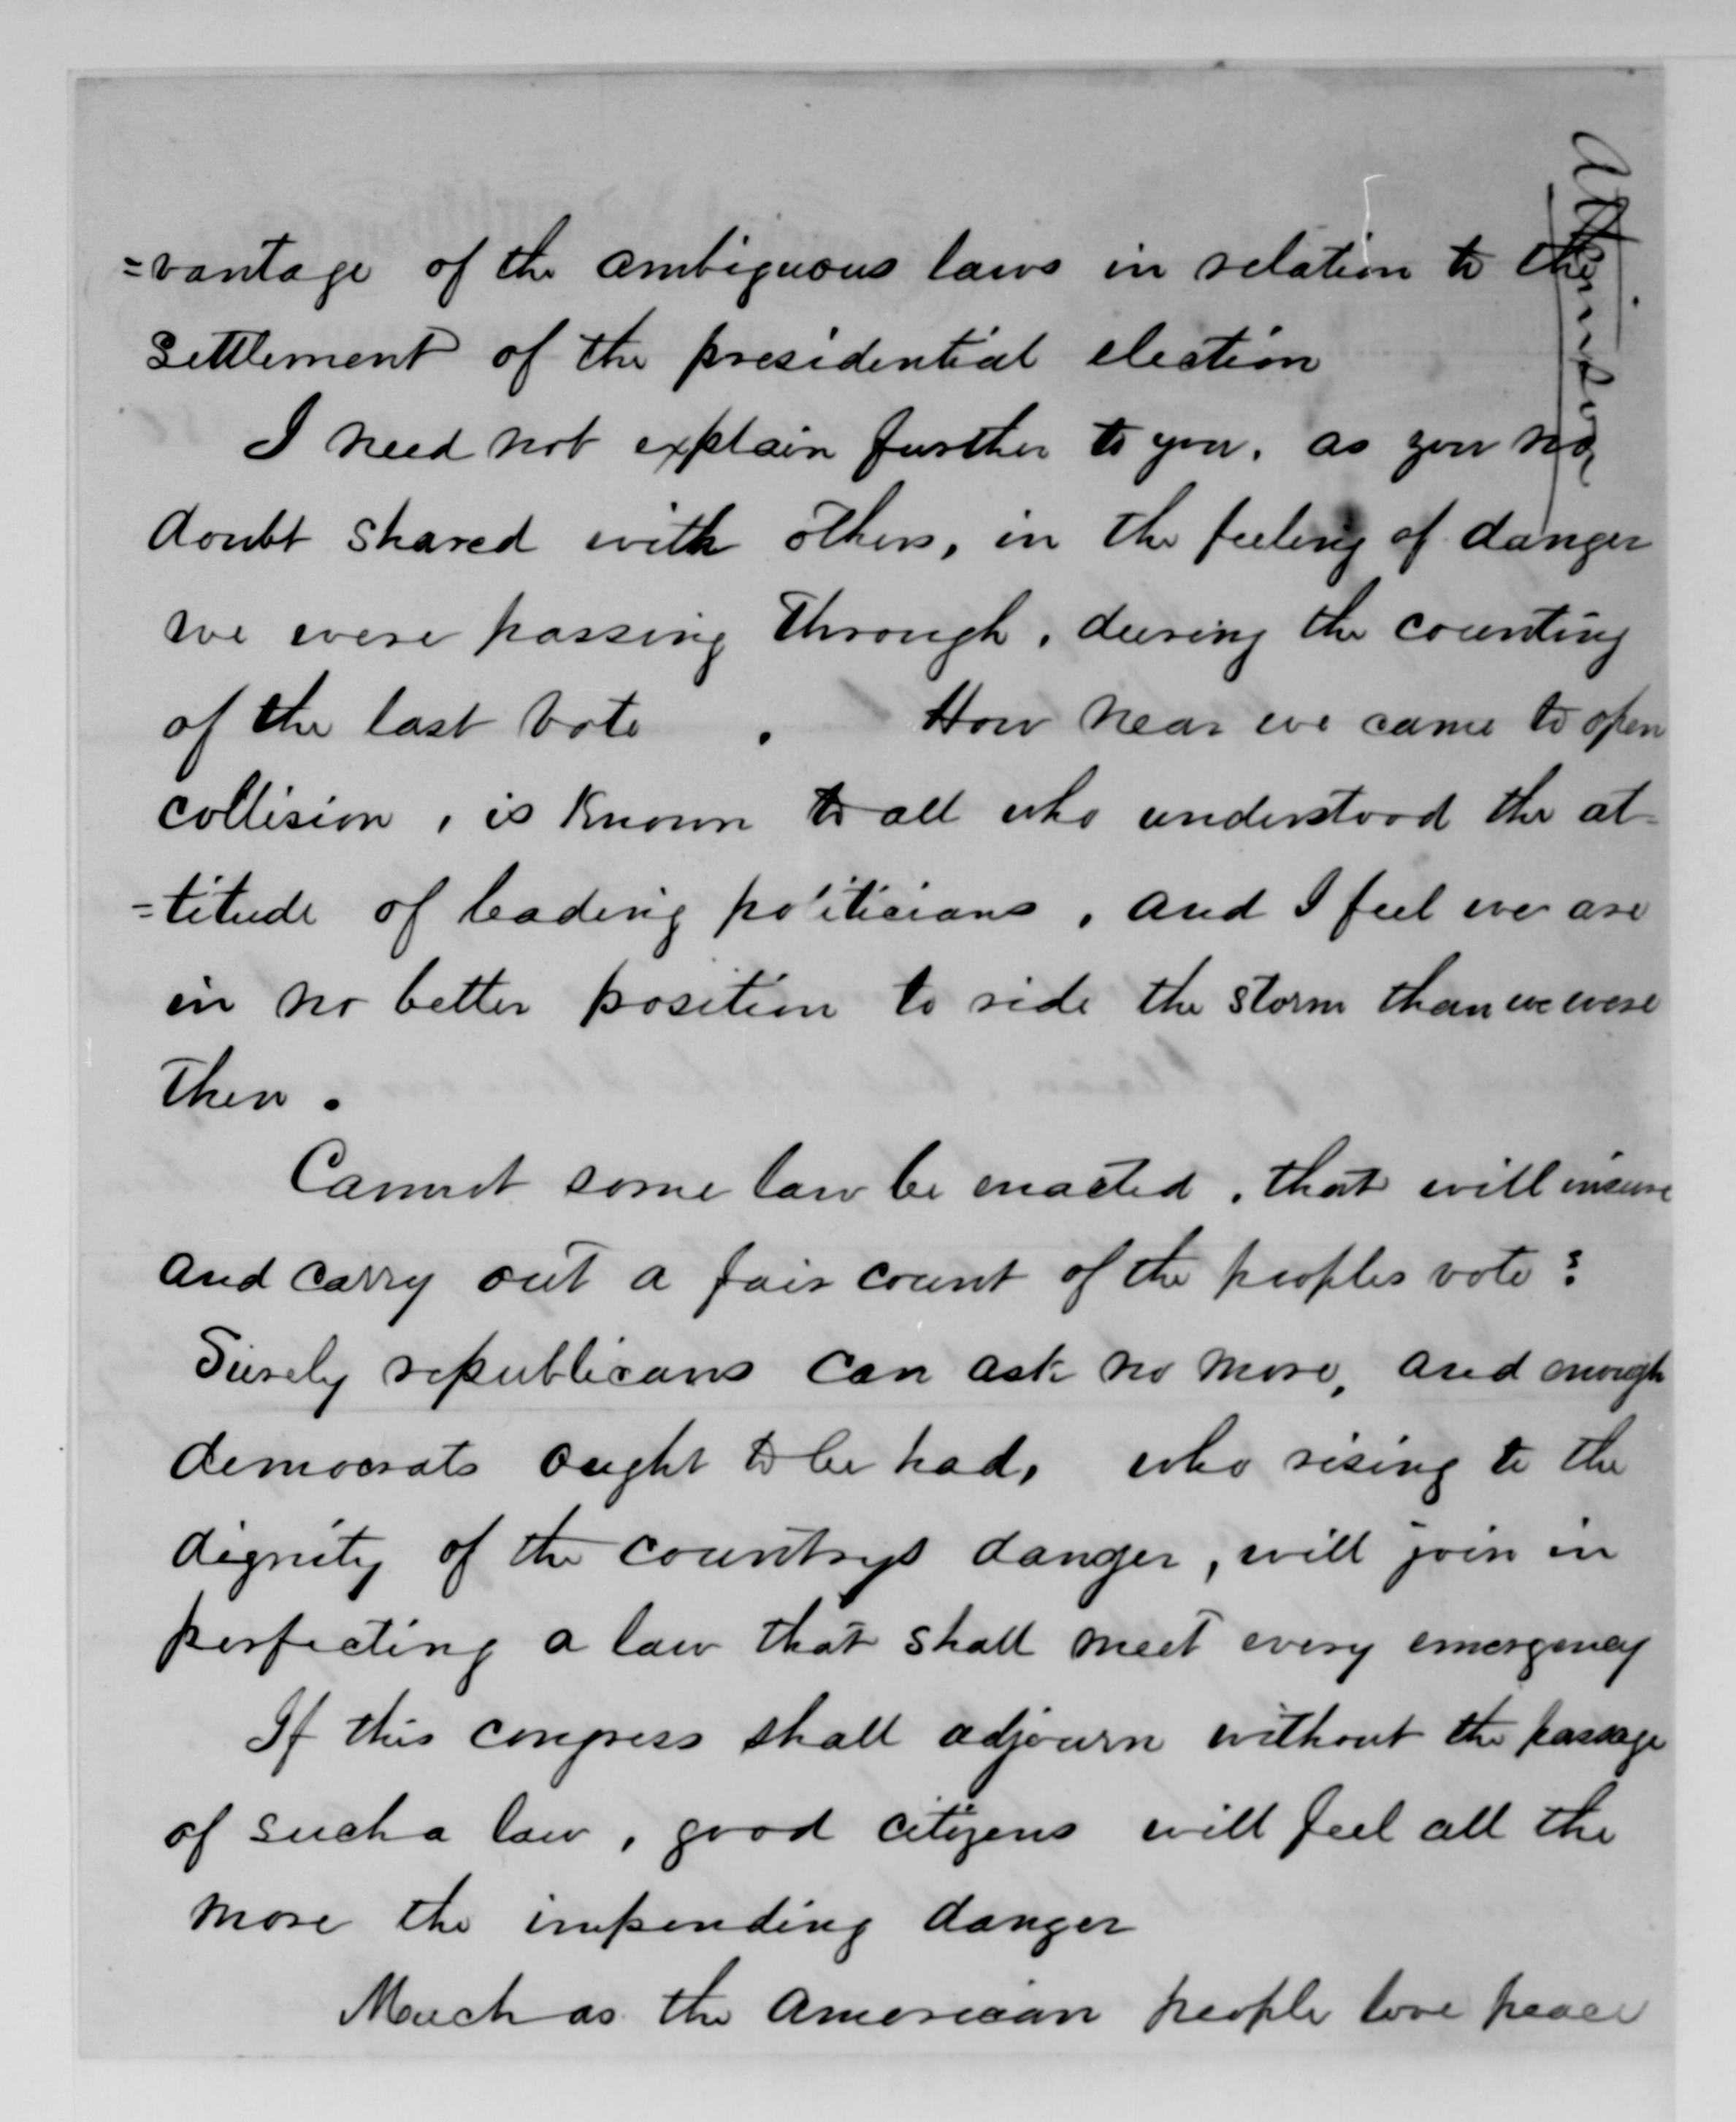 =vantage of the ambiguous laws in relation to the
settlement of the presidential election
I need not explain further to you, as you no
doubt shared with others, in the feeling of danger
we were passing through, during the counting
of the last vote . How near we came to open
collision, is known to all who understood the at-
=titude of leading politicians, and I feel we are
in no better position to ride the storm than we were
then.
Cannot some law be enacted, that will insure
and carry out a fair count of the peoples vote?
Surely republicans can ask no more, and enough
democrats ought to be had, who rising to the
dignity of the countrys danger, will join in
perfecting a law that shall meet every emergency
If this congress shall adjourn without the passage
of such a law, good citizens will feel all the
more the impending danger
Much as the American people love peace
Atkinson